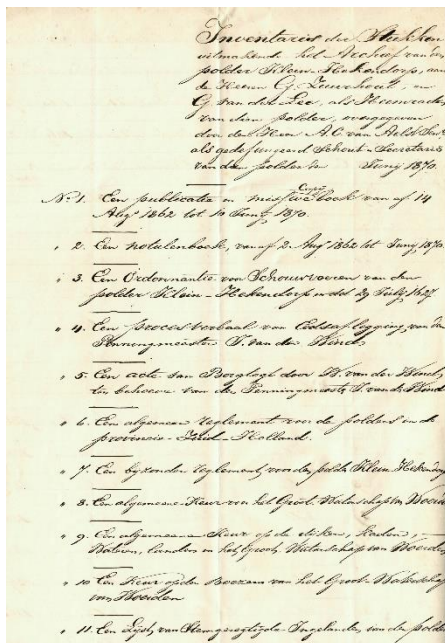 Inventaris der Stukken
uitmakende het Archief van den
polder Klein-Hekendorp, aan
de Heeren G. Zuurhout, en
G. van der Lee, als Heemraden
van dien polder, overgegeven
door den Heer A.C. van Aelst
als gedefungeerd Schout-Secretaris
van dien polder Junij 1870.
No. 1. Een publicatie en missive Copie boek van af 14
Aug. 1862 tot 10 Junij 1870.
" 2. Een notulenboek, van af 2 Aug 1862 tot Junij 1870
" 3. Een Ordonnantie van Schouwvoeren van den
polder Klein-Hekendorp in dd 29 Julij 1627
" 4. Een proces verbaal van Eedsaflegging van den
Penningmeester
" 5. Een acte van Borgtogt door van der
ten behoeve van den Penningmeester
" 6. Een algemeen reglement voor de polders in de
provincie Zuid-Holland.
" 7. Een byzonder reglement voor den polder Klein Hekendorp
" 8. Een algemeene Keur van het Groot-Waterschap van Woerden
" 9. Een algemeene Keur op de dijken, kaden,
landen in het Groot-Waterschap van Woerden
" 10 Een Keur op den Boezem van het Groot-Waterschap
van Woerden
" 11. Een Lijst van Stemgeregtigde Ingelanden van den polder